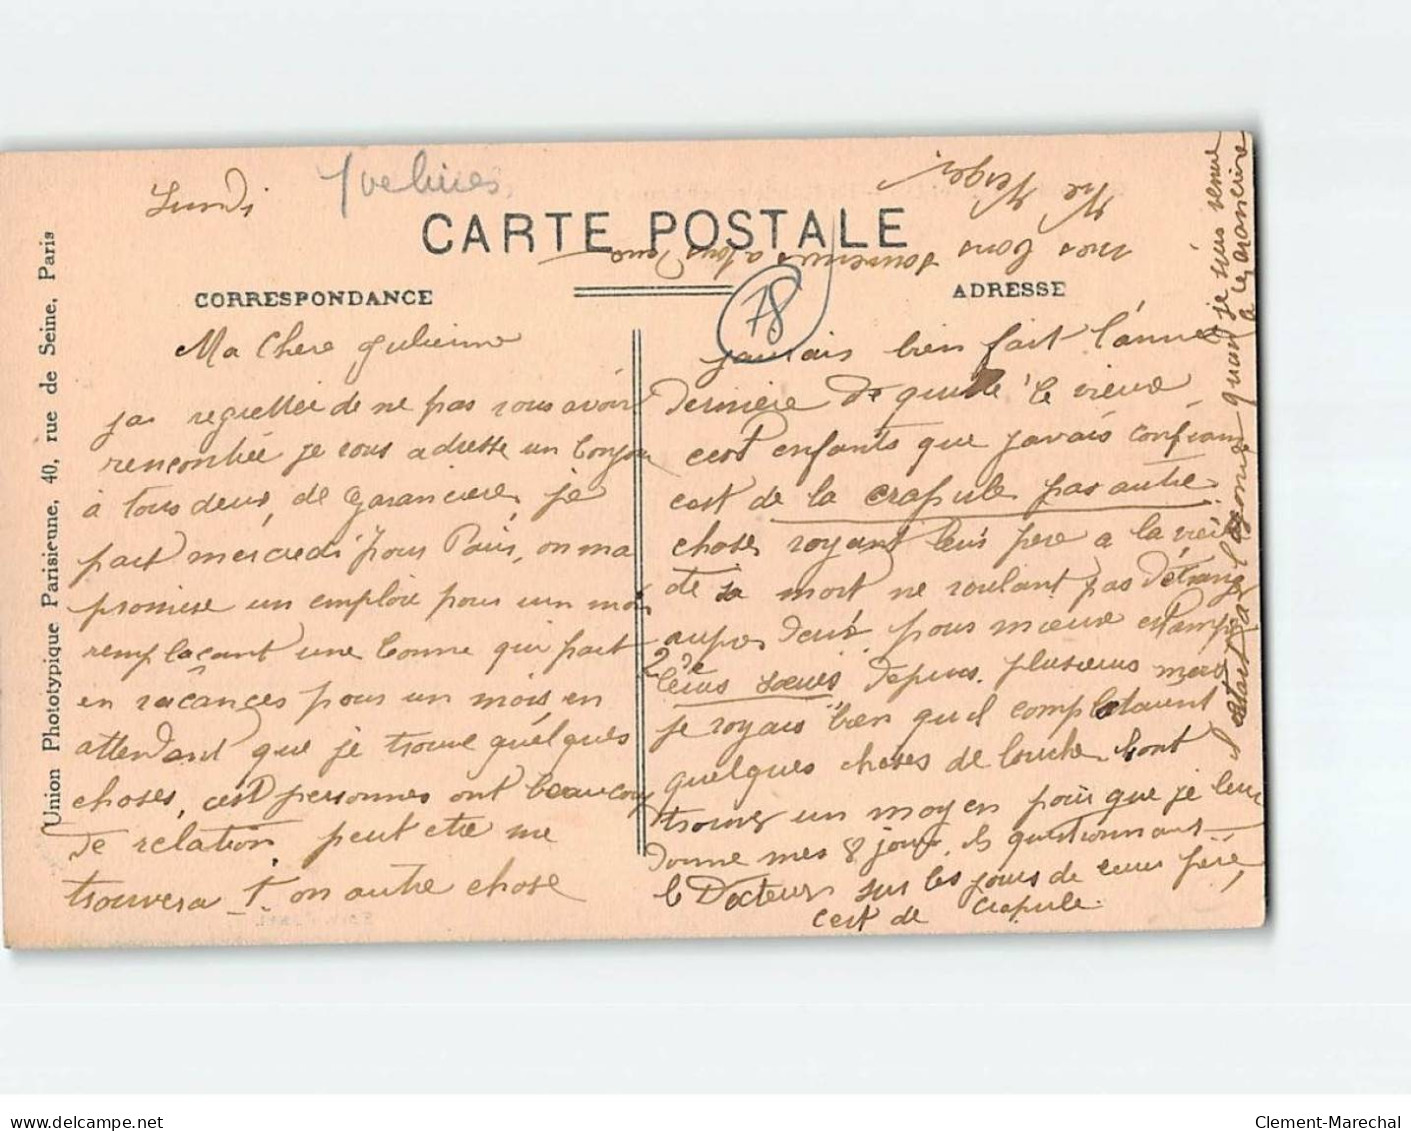 Lundi
Yvelines
CARTE POSTALE
CORRESPONDANCE
ADRESSE
78
Union Phototypique Parisienne, 40, rue de Seine, Paris
Ma Chere Julienne
jai regretter de ne pas vous avoir
rencontrée je vous adresse un bonjour
à tous deux, de Garanciere, je
part mercredi pour Paris, on ma
promise un emploie pour un mois
remplaçant une bonne qui part
en vacances pour un mois en
attendant que je trouve quélques
choses, cest personnes ont beaucoup
de relation, peut etre me
trouvera t. on autre chose
jamais bien fait l'année
derniere de quitté le vieux
cest enfants que javais confiance
cest de la crapule pas autre
choses voyant leus pere a la veille
de sa mort ne voulant pas d'étrangé
aupres deux. pour mieux
2 leurs sœurs depuis plusieurs mois
je voyais bien qu'il complotaient
quelques choses de louche. ont
trouver un moyen pour que je leur
donne mes 8 jours, ils questionnant
le Docteur sur les jours de leur père,
cest de crapule.
il etait a l'agonie quand je suis venue
a la Garanciere
nos bons souvenirs a tous deux
Me Verger
Clement-Marechal
www.delcampe.net